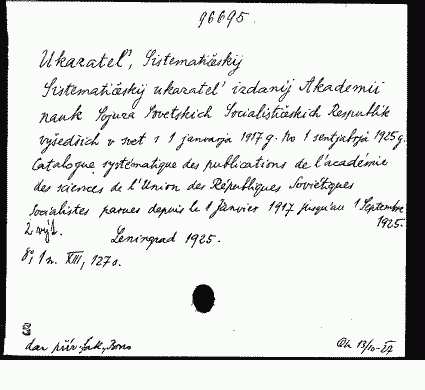 96695.
Ukazatel', Sistematičeskij
Sistematičeskij ukazatel' izdanij Akademii
nauk Sojuza Sovetskich Socialističeskich Respublik
vyšedšich v svet s 1 janvarja 1917 g. po 1 sentjabrja 1925 g.
Catalogue systématique des publications de l'académie
des sciences de l'Union des Républiques Soviétiques
Socialistes parues depuis le 1 Janvier 1917 jusqu'au 1 Septembre
1925.
2 výt. Leningrad 1925.
8°, 1 n. XIII, 127 s.
dar
13/10-27